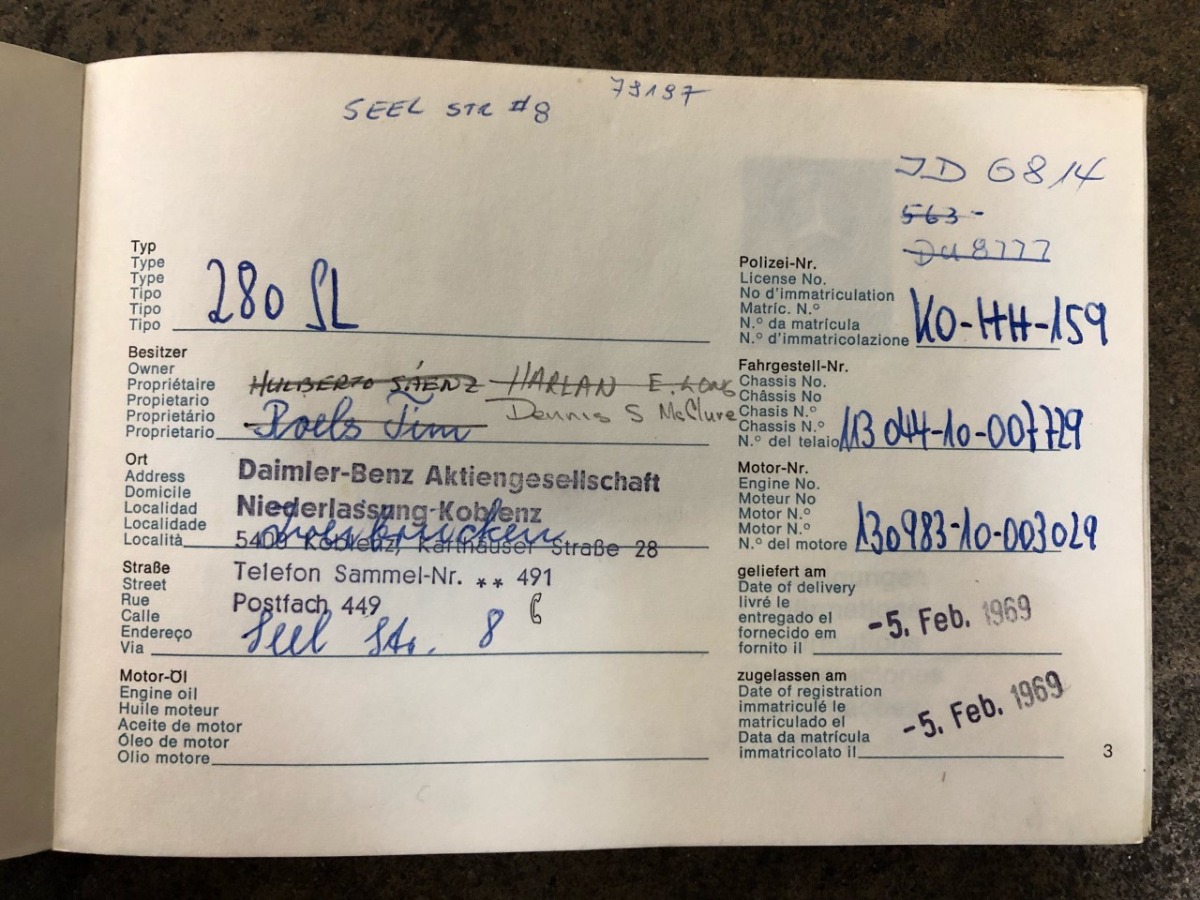 79197
SEEL STR #8
JD 6814
563-
Du 8777
Typ
Type
Type
Tipo
Tipo
Tipo
280 SL
Polizei-Nr.
License No.
No d'immatriculation
Matríc. N.º
N.º da matrícula
N.º d'immatricolazione
KO-HH-159
Besitzer
Owner
Propriétaire
Propietario
Proprietário
Proprietario
HULBERTO SÁENZ HARLAN E. LONG
Dennis S McClure
Roels Tim
Fahrgestell-Nr.
Chassis No.
Châssis No
Chasis N.º
Chassis N.º
N.º del telaio
113 044-10-007729
Ort
Address
Domicile
Localidad
Localidade
Località
Daimler-Benz Aktiengesellschaft
Niederlassung Koblenz
5400 Koblenz, Karthäuser Straße 28
Motor-Nr.
Engine No.
Moteur No
Motor N.º
Motor N.º
N.º del motore
130983-10-003029
Straße
Street
Rue
Calle
Endereço
Via
Telefon Sammel-Nr. ** 491
Postfach 449
Seel Str. 8
geliefert am
Date of delivery
livré le
entregado el
fornecido em
fornito il
-5. Feb. 1969
Motor-Öl
Engine oil
Huile moteur
Aceite de motor
Óleo de motor
Olio motore
zugelassen am
Date of registration
immatriculé le
matriculado el
Data da matrícula
immatricolato il
-5. Feb. 1969
3